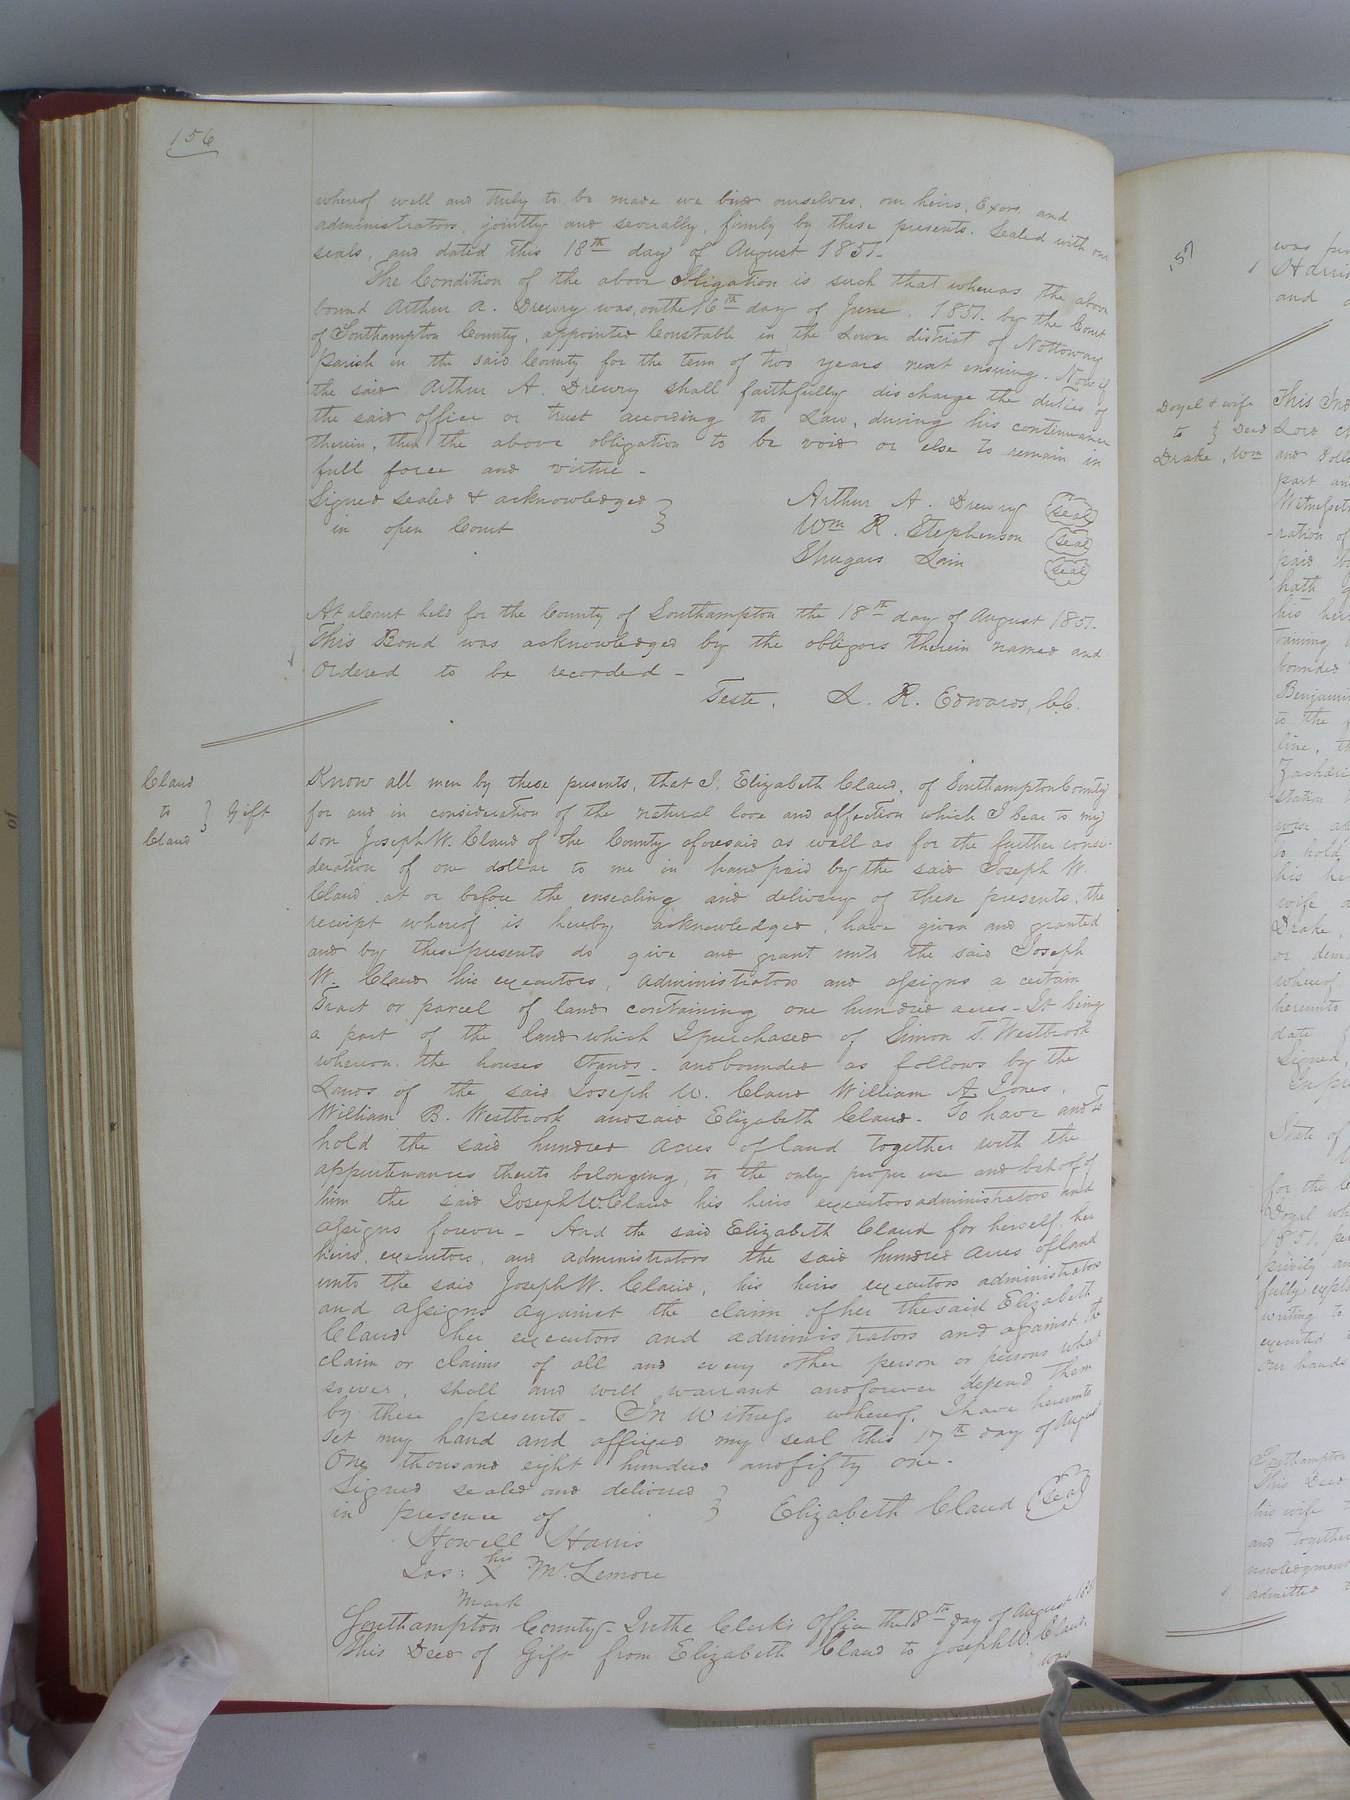 156
whereof well and truly to be made we bind ourselves, our heirs, Exors. and
administrators, jointly and severally, firmly by these presents. Sealed with our
seals, and dated this 18th day of August 1851.
The Condition of the above Obligation is such that whereas the above
bound Arthur A. Drewry was, on the 16th day of June, 1851. by the Court
of Southampton County, appointed Constable in the Lower district of Nottoway
Parish in the said County for the term of two years next ensuing. Now if
the said Arthur A. Drewry shall faithfully discharge the duties of
the said office or trust according to Law, during his continuance
therein, then the above obligation to be void or else to remain in
full force and virtue -
Signed sealed & acknowledged
in open Court
Arthur A. Drewry (Seal)
Wm R. Stephenson (Seal)
Shugars Lain (Seal)
At a Court held for the County of Southampton the 18th day of August 1851.
This Bond was acknowledged by the obligors therein named and
Ordered to be recorded -
Teste, L. R. Edwards, C.C.
Claud
to } Gift
Claud
Know all men by these presents, that I, Elizabeth Claud, of Southampton County
for and in consideration of the natural love and affection which I bear to my
son Joseph W. Claud of the County aforesaid as well as for the further consi-
deration of one dollar to me in hand paid by the said Joseph W.
Claud at or before the ensealing and delivery of these presents, the
receipt whereof is hereby acknowledged, have given and granted
and by these presents do give and grant unto the said Joseph
W. Claud his executors, administrators and assigns a certain
Tract or parcel of land containing one hundred acres - It being
a part of the land which I purchased of Simon T. Westbrook
whereon the houses stands - and bounded as follows by the
Lands of the said Joseph W. Claud William A. Jones,
William B. Westbrook and said Elizabeth Claud - To have and to
hold the said hundred acres of land together with the
appurtenances thereto belonging, to the only proper use and behoof of
him the said Joseph W. Claud his heirs executors administrators and
assigns forever - And the said Elizabeth Claud for herself, her
heirs, executors, and administrators the said hundred acres of land
unto the said Joseph W. Claud, his heirs executors administrators
and assigns against the claim of her the said Elizabeth
Claud her executors and administrators and against the
claim or claims of all and every other person or persons what
soever, shall and will warrant and forever defend them
by these presents - In Witness whereof, I have hereunto
set my hand and affixed my seal this 17th day of August
One thousand eight hundred and fifty one.
Signed sealed and delivered
in presence of
Elizabeth Claud (Seal)
Howell Harris
Jas: his X McLemore
Mark
Southampton County - In the Clerk's Office the 18th day of August 1851
This Deed of Gift from Elizabeth Claud to Joseph W. Claud,
was
157
Doyel & wife
to } Deed
Drake, Wm
and
This Ind
and Doll
part an
ration of
paid b
hath
his hei
bounded
Benjamin
to the
line, th
station
to hold
his he
wife
Drake,
or dem
whereof
hereunto
date
Signed,
State of
for the
Doyel wh
1851,
privity an
fully expl
writing to
executed
our hands
Southampton
This Deed
his wife
and together
admitted